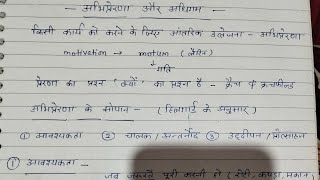 — अभिप्रेरणा और अधिगम —
किसी कार्य को करने के लिए आंतरिक उत्तेजना - अभिप्रेरणा
motivation → motum (लैटिन)
↓
गति
प्रेरणा का प्रश्न 'क्यों' का प्रश्न है - क्रैच & क्रचफील्ड
अभिप्रेरणा के सोपान - (हिलगार्ड के अनुसार)
① आवश्यकता ② चालक / अन्तर्नोद ③ उद्दीपन / प्रोत्साहन
① आवश्यकता -
जब जरूरतें पूरी करनी हो (रोटी, कपड़ा, मकान)